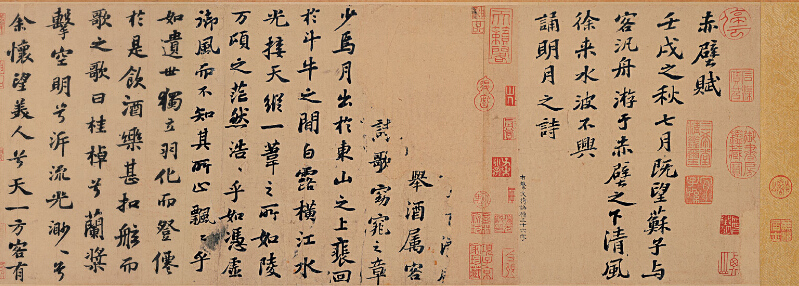 赤壁賦
壬戌之秋七月既望蘇子与
客汎舟游于赤壁之下清風
徐来水波不興
誦明月之詩
舉酒属客
詩歌窈窕之章
少焉月出於東山之上裵回
於斗牛之間白露橫江水
光接天縱一葦之所如陵
万頃之茫然浩〻乎如憑虛
御風而不知其所止飄〻乎
如遺世獨立羽化而登僊
於是飲酒樂甚扣舷而
歌之歌曰桂棹兮蘭槳
擊空明兮泝流光渺〻兮
余懷望美人兮天一方客有